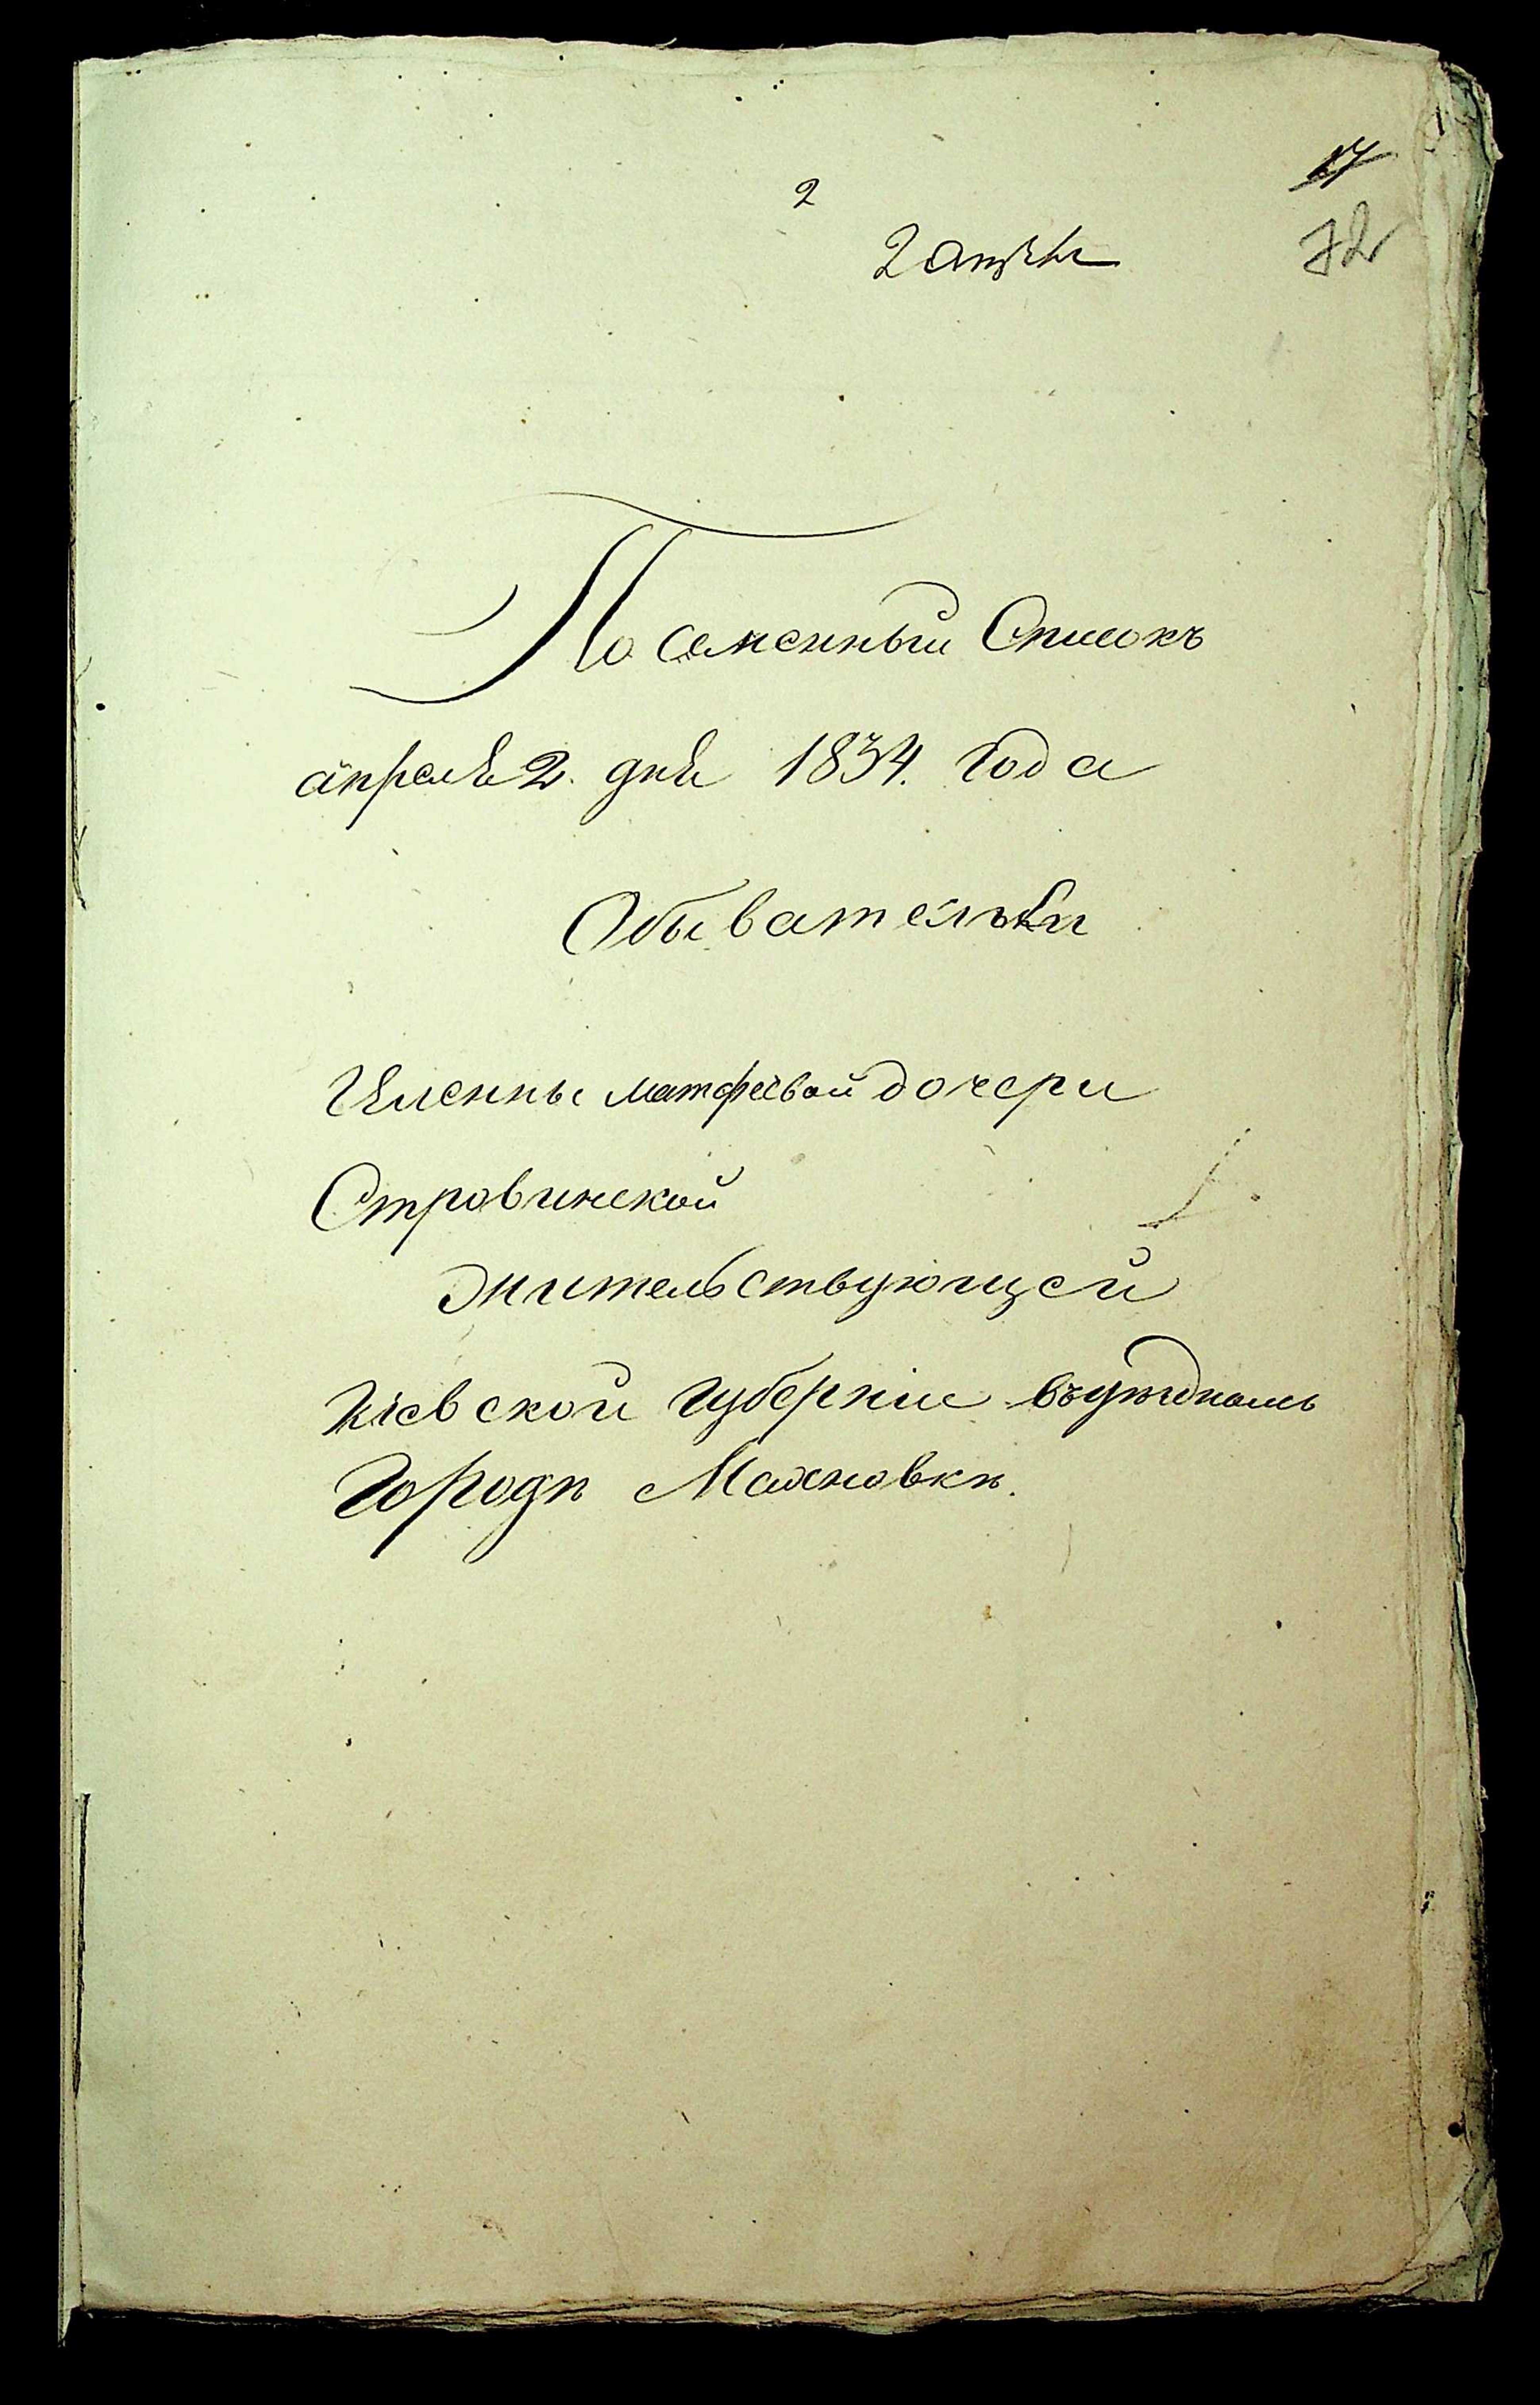 2
72
По семенный Списокъ
апреля 2. дня 1834. Года
Обывательки
матфеевой дочери
Стровинской
жительствующей
Кіевской Губерніи въ уѣздномъ
Городѣ Махновкѣ.